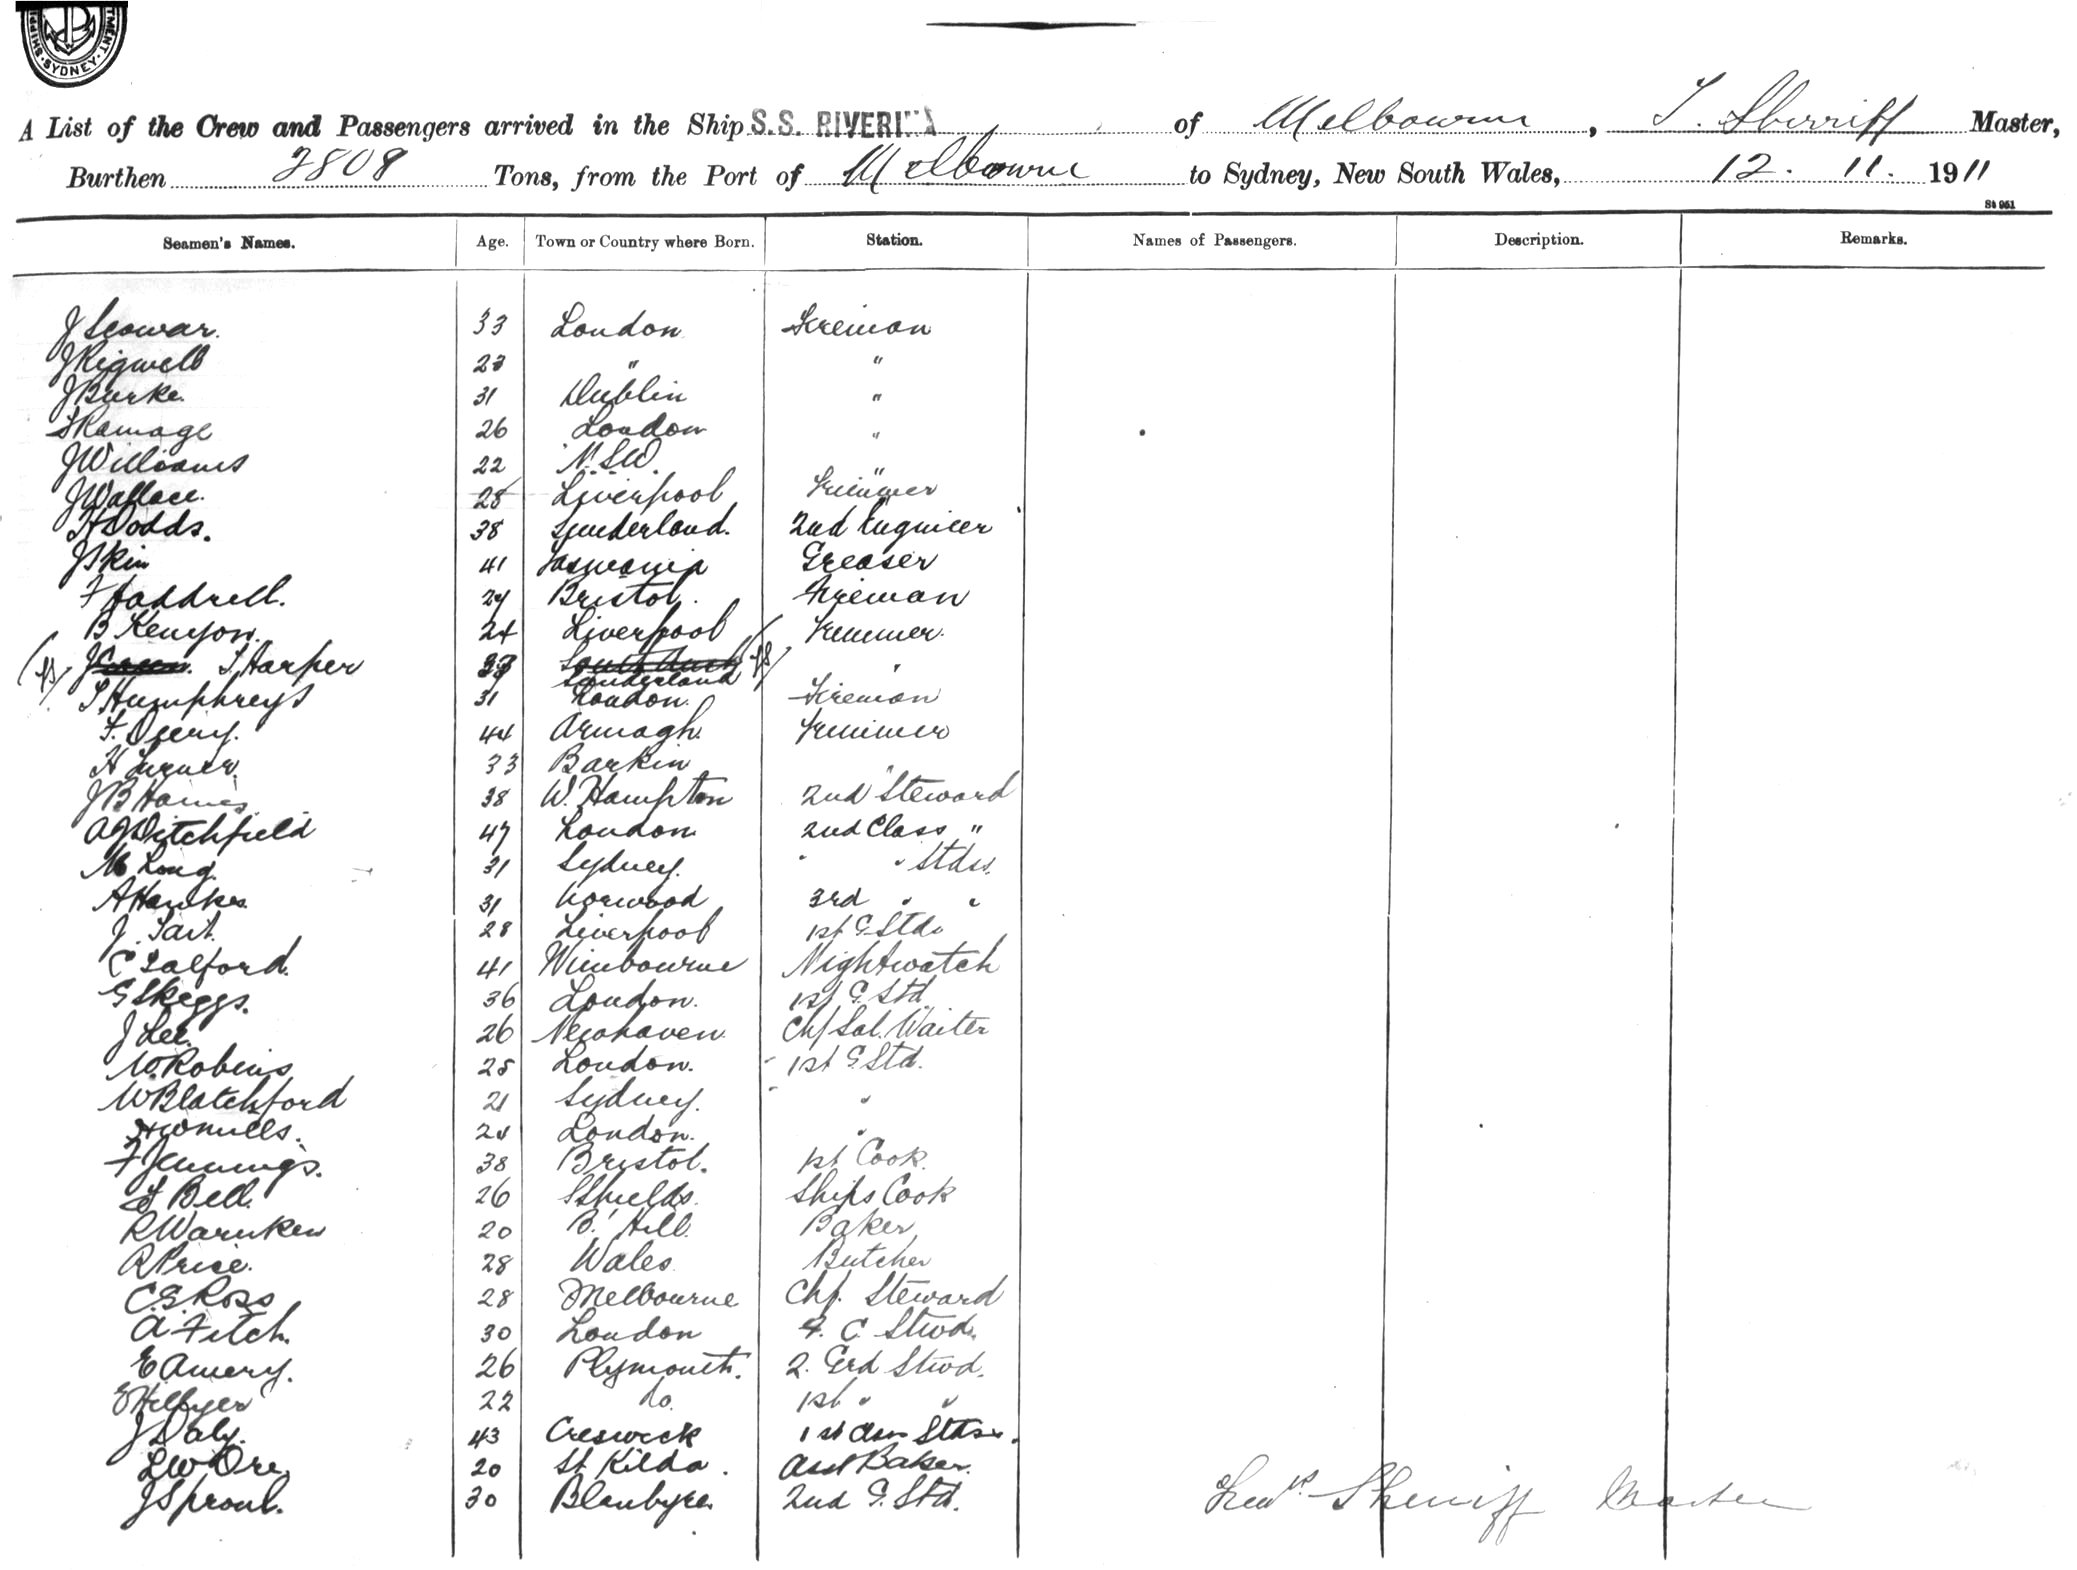 SYDNEY
A List of the Crew and Passengers arrived in the Ship S.S. RIVERINA of Melbourne, T. Sherriff Master,
Burthen 2808 Tons, from the Port of Melbourne to Sydney, New South Wales, 12. 11. 1911
St 951
Seamen's Names. Age. Town or Country where Born. Station. Names of Passengers. Description. Remarks.
J 33 London Fireman
J Rigwell 23 " "
J Burke. 31 Dublin "
Ramage 26 London "
J Williams 22 N.S.W. "
J Wallace. 28 Liverpool Trimmer
H Dodds. 38 Sunderland. 2nd Engineer
J Skin 41 Tasmania Greaser
F Haddrell. 24 Bristol. Fireman
B Kenyon. 24 Liverpool Trimmer.
T Harper Sunderland "
T Humphreys 31 London. Fireman
F. 44 Armagh. Trimmer
H Turner. 33 Barkin "
J B Hames 38 W. Hampton 2nd Steward
A J Ditchfield 47 London 2nd Class "
M Long. 31 Sydney. " " Stdss.
A Hawkes 31 Norwood 3rd " "
J. Tait. 28 Liverpool 1st G. Std.
C Salford. 41 Wimbourne Nightwatch
G Skeggs. 36 London. 1st G. Std.
J Lee. 26 Newhaven Chf Sal. Waiter
W. Robins 25 London. 1st G Std.
W Blatchford 21 Sydney. "
24 London. "
F Jennings. 38 Bristol. 1st Cook.
Bell. 26 S Shields. Ships Cook
R Warnken 20 B. Hill. Baker
R Price. 28 Wales Butcher
C. G. Ross 28 Melbourne Chf. Steward
A Fitch. 30 London F. C. Stwd.
E Amery. 26 Plymouth. 2. Grd Stwd.
E Hellyer 22 do. 1st " "
J Daly. 43 Creswick 1st Stdss.
L W Orr 20 St Kilda. Asst Baker.
J Sproul. 30 2nd G. Std.
Sherriff Master